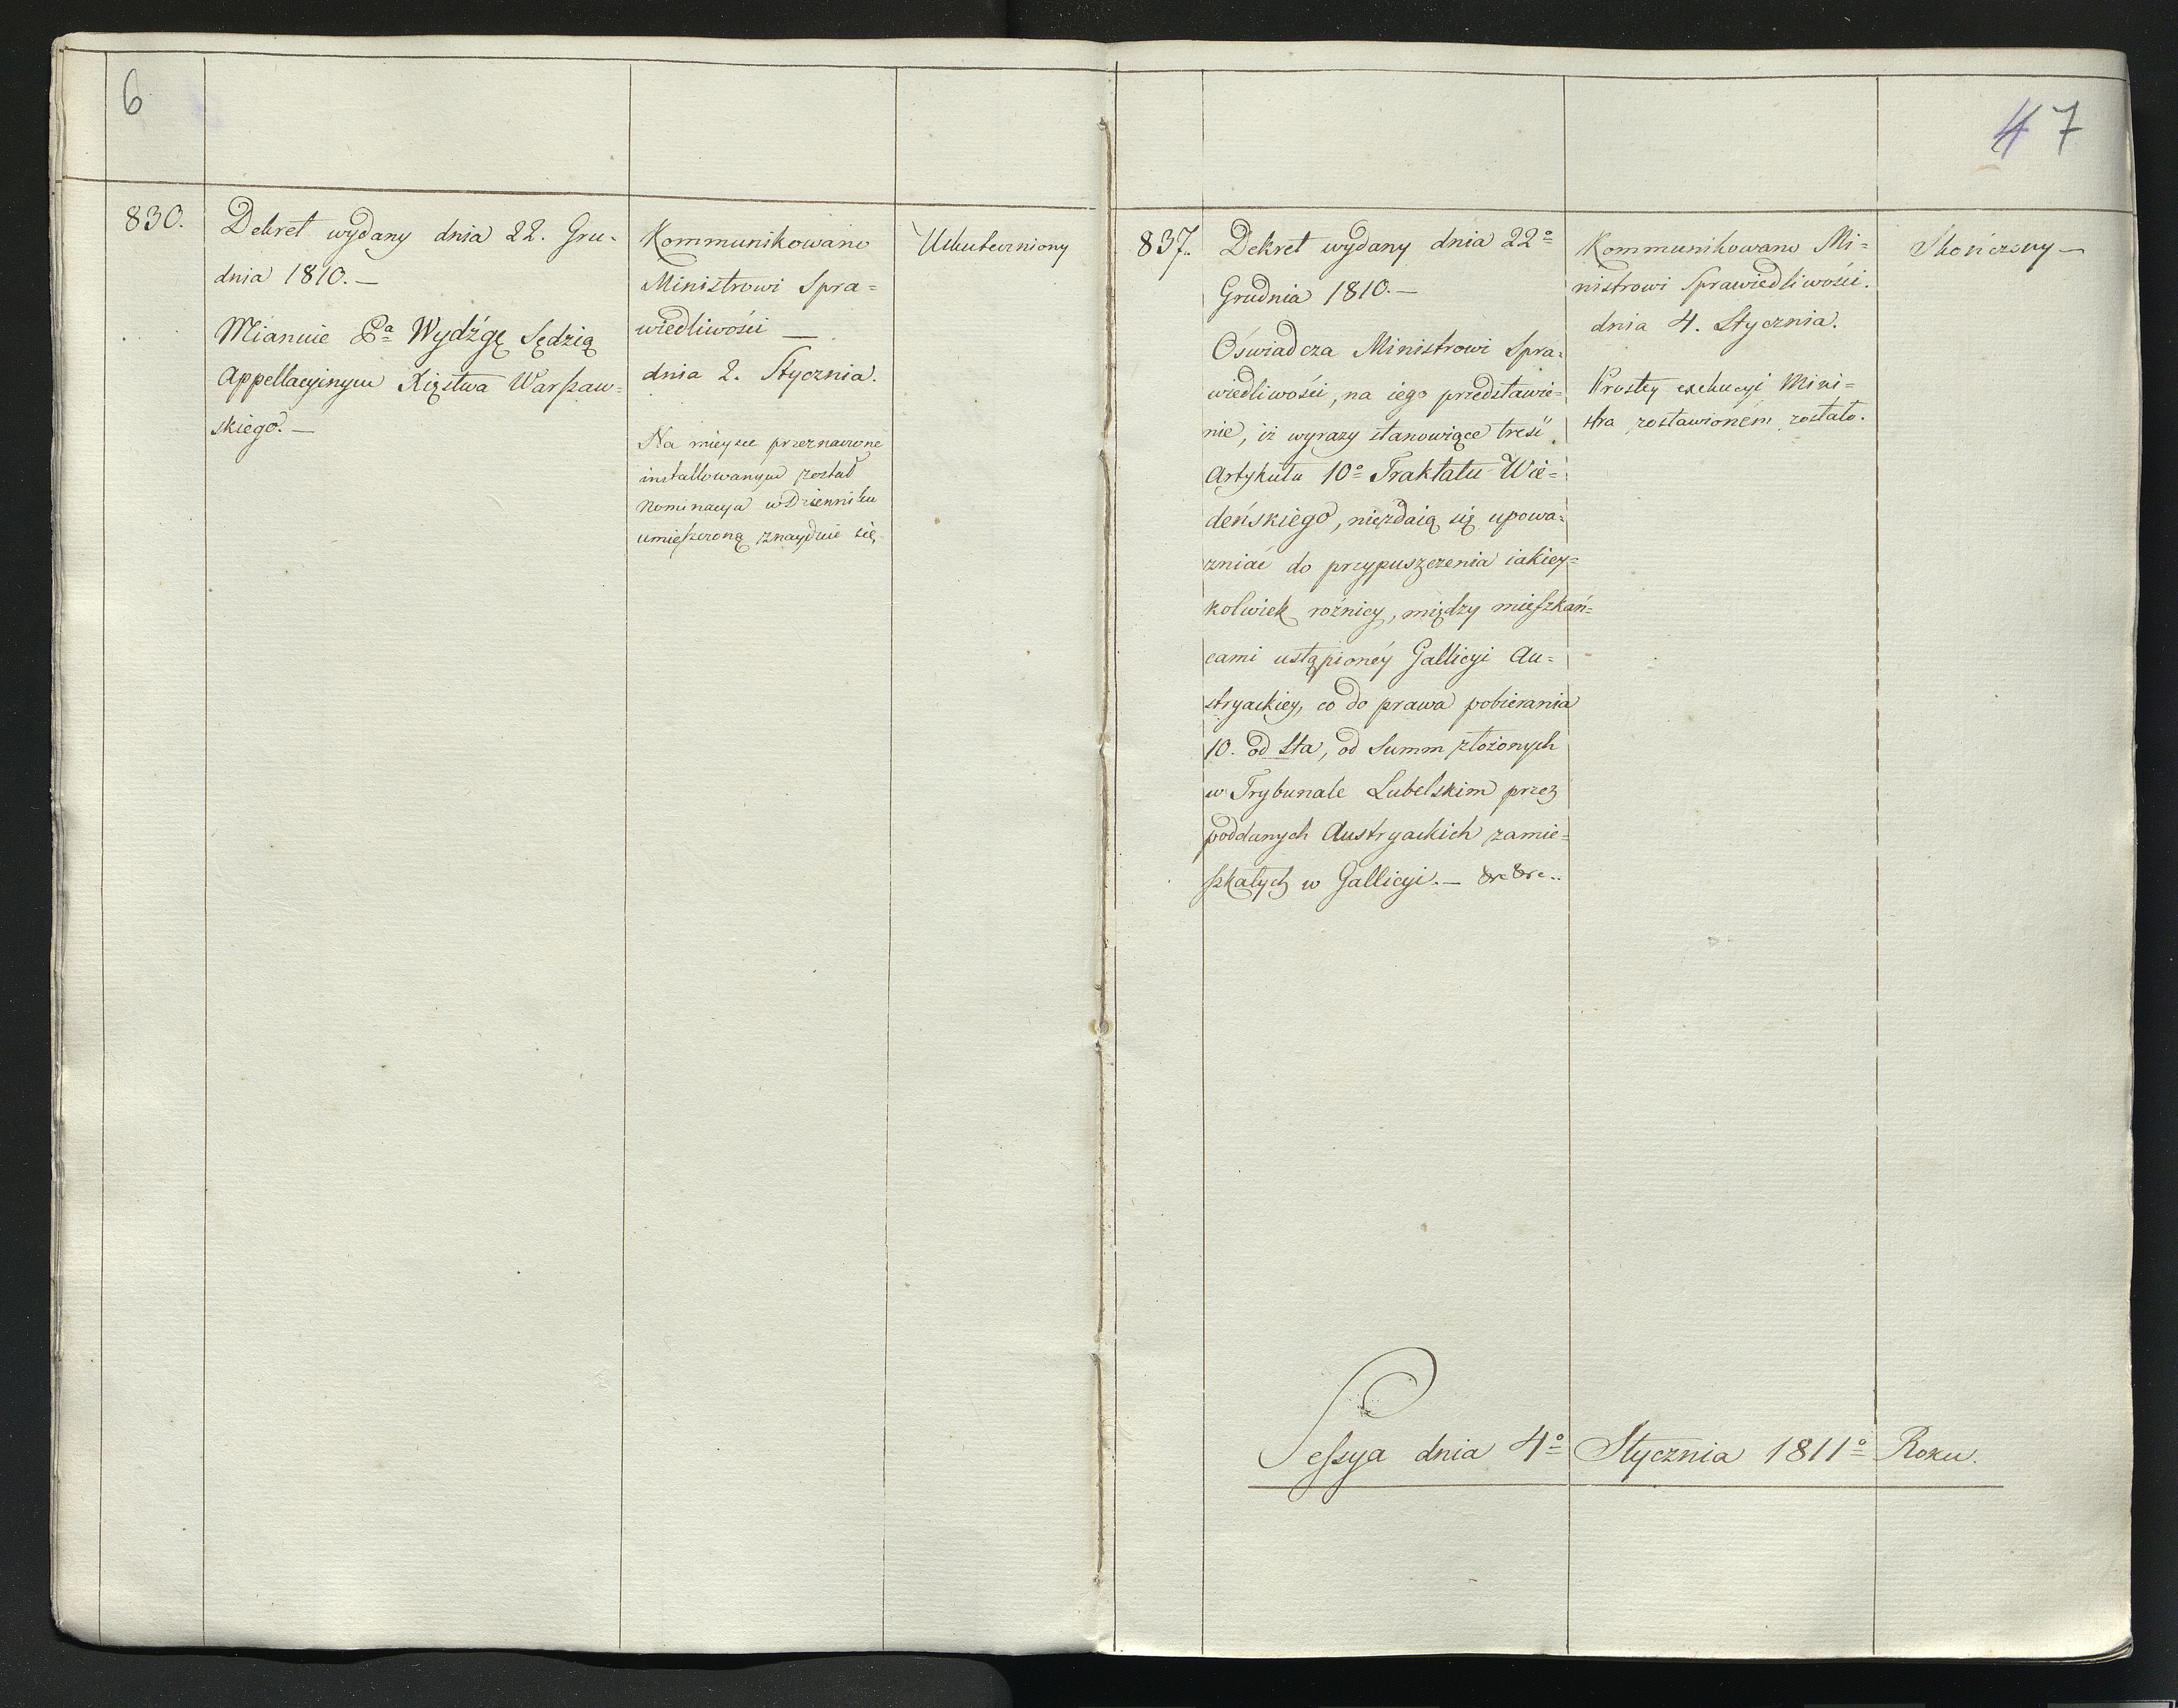 6
830.
Dekret wydany dnia 22. Gru-
dnia 1810. —
Mianuie Pa Wydźgę Sędzią
Appellacyinym Xięstwa Warszaw-
skiego. —
Kommunikowano
Ministrowi Spra=
wiedliwości —
dnia 2. Stycznia.
Na mieysce przeznaczone
installowanym został
Nominacya w Dzienniku
umieszczoną znayduie się.
Uskuteczniony
47
837.
Dekret wydany dnia 22o
Grudnia 1810. —
Oświadcza Ministrowi Spra=
wiedliwości, na iego przedstawie=
nie, iż wyrazy stanowiące treść
Artykułu 10o Traktatu Wie=
deńskiego, niezdaią się upowa=
zniać do przypuszczenia iakiey=
kolwiek roźnicy, między mieszkań=
cami ustąpionéy Gallicyi Au=
stryackiey, co do prawa pobierania
10. od sta, od Summ złożonych
w Trybunale Lubelskim przez
poddanych Austryackich zamie=
szkałych w Gallicyi. — &c &c..
Kommunikowano Mi=
nistrowi Sprawiedliwości.
dnia 4. Stycznia.
Prostey exekucyi Mini=
stra zostawioném zostało.
Skończony —
Sessya dnia 4o Stycznia 1811o Roku.